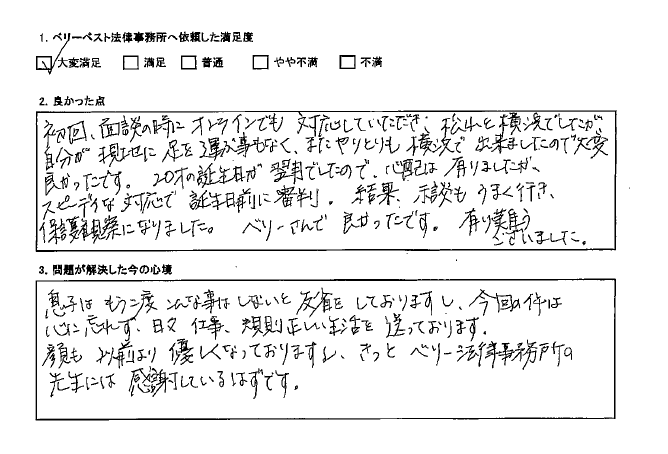 1. ベリーベスト法律事務所へ依頼した満足度
大変満足 満足 普通 やや不満 不満
2. 良かった点
初回、面談の時に オンラインでも 対応していただき、松山と横浜でしたが
自分が 現地に 足を運ぶ事もなく、またやりとりも 横浜で 出来ましたので大変
良かったです。 20才の誕生日が 翌月でしたので、心配は 有りましたが、
スピーディな 対応で 誕生日前に 審判。 結果、示談も うまく行き、
保護観察になりました。 ベリーさんで 良かったです。 有り難う
ございました。
3. 問題が解決した今の心境
息子は もう二度 こんな事は しないと 反省を しておりますし、今回の件は
心に忘れず、日々 仕事、規則正しい生活を 送っております。
顔も 以前より 優しくなっておりますし、きっと ベリー法律事務所の
先生には 感謝しているはずです。